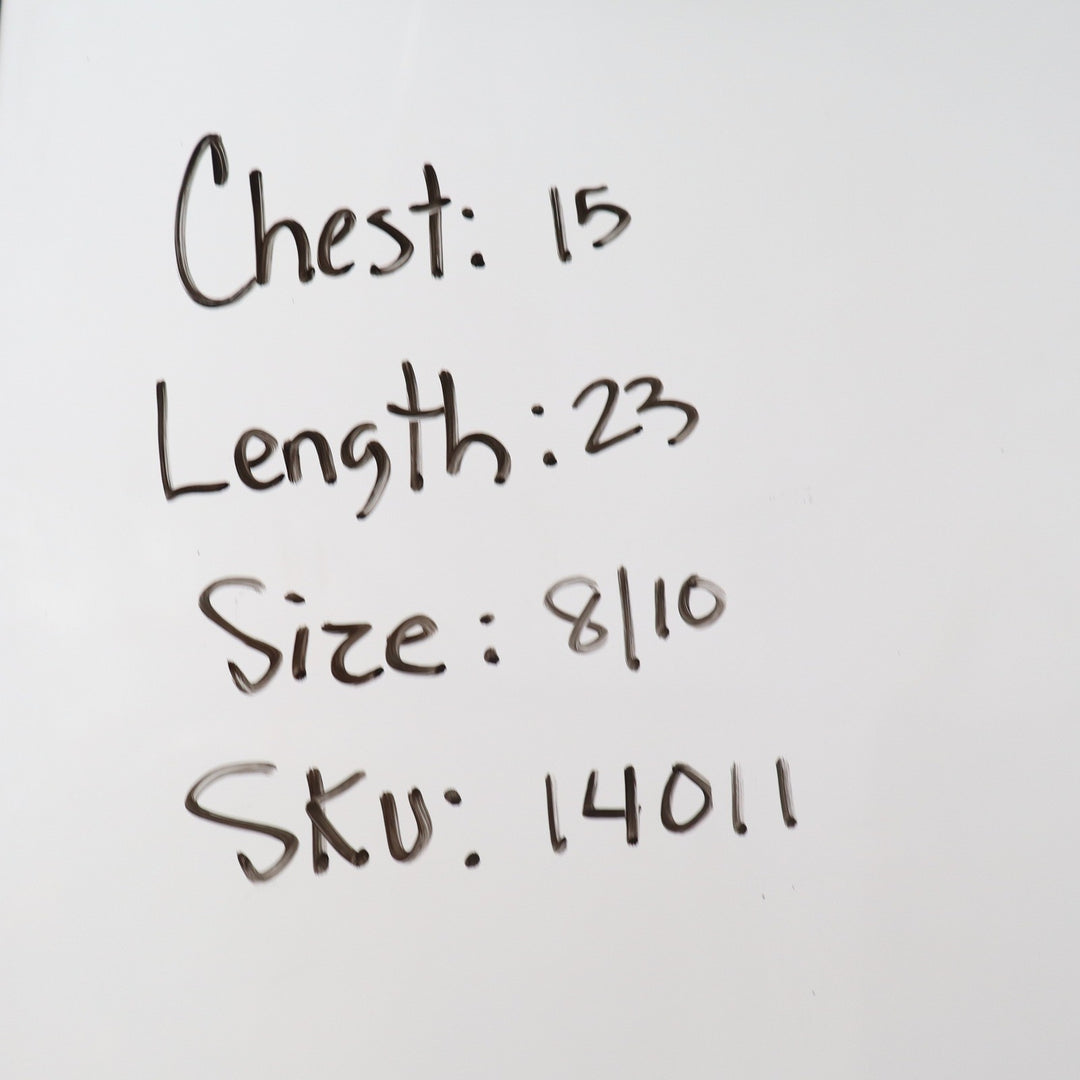 Chest: 15
Length: 23
Size: 8/10
SKU: 14011